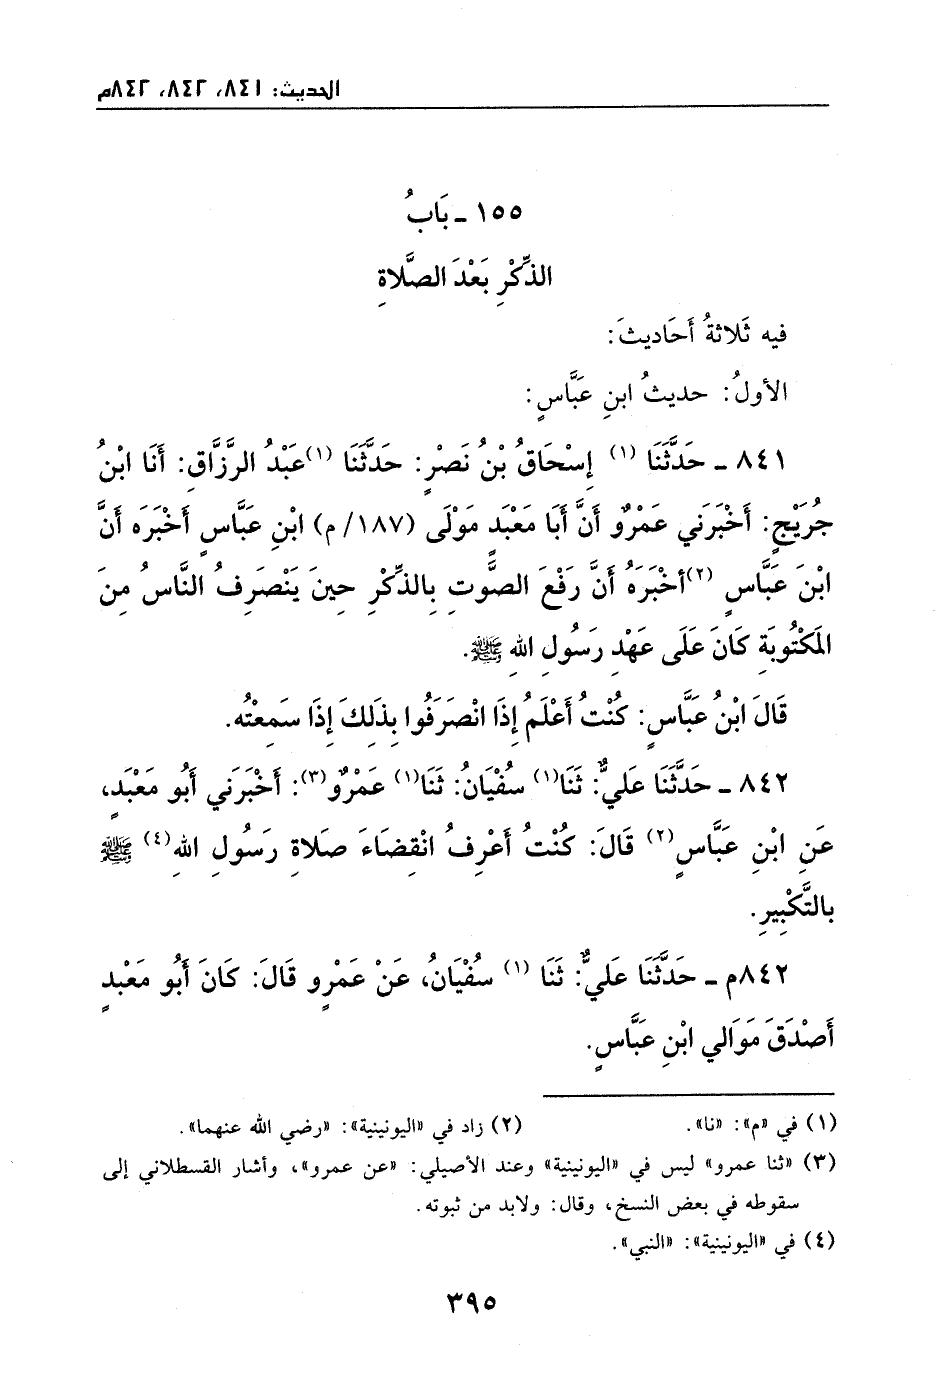 الحديث: ٨٤١، ٨٤٢، ٨٤٢م
١٥٥ ـ بَابُ
الذِّكْرِ بَعْدَ الصَّلاةِ
فيه ثَلاثةُ أَحَاديثَ:
الأولُ: حديثُ ابنِ عَبَّاسٍ:
٨٤١ ـ حَدَّثَنَا (١) إِسْحَاقُ بْنُ نَصْرٍ: حَدَّثَنَا (١)عَبْدُ الرَّزَّاقِ: أَنَا ابْنُ
جُرَيْجٍ: أَخْبَرَني عَمْرٌو أَنَّ أَبَا مَعْبَدٍ مَوْلَى (١٨٧/ م) ابْنِ عَبَّاسٍ أَخْبَرَه أَنَّ
ابْنَ عَبَّاسٍ (٢)أخْبَرَهُ أَنَّ رَفْعَ الصَّوتِ بِالذِّكْرِ حِينَ يَنْصَرِفُ النَّاسُ مِنَ
المَكْتُوبَةِ كَانَ عَلَى عَهْدِ رَسُولِ اللهِ ﷺ.
قَالَ ابْنُ عَبَّاسٍ: كُنْتُ أَعْلَمُ إِذَا انْصَرَفُوا بِذَلِكَ إِذَا سَمِعْتُه.
٨٤٢ ـ حَدَّثَنَا عَليٌّ: ثَنَا(١) سُفْيَانُ: ثَنَا(١) عَمْرٌو(٣): أَخْبَرَني أَبُو مَعْبَدٍ،
عَنِ ابْنِ عَبَّاسٍ(٢) قَالَ: كُنْتُ أَعْرِفُ انْقِضَاءَ صَلاةِ رَسُولِ اللهِ(٤) ﷺ
بالتَّكْبِيرِ.
٨٤٢م ـ حَدَّثَنَا عَليٌّ: ثَنَا (١) سُفْيَانُ، عَنْ عَمْرٍو قَالَ: كَانَ أَبُو مَعْبْدٍ
أَصْدَقَ مَوَالي ابْنِ عَبَّاسٍ.
(١) في «م»: «نا». (٢) زاد في «اليونينية»: «رضي الله عنهما».
(٣) «ثنا عمرو» ليس في «اليونينية» وعند الأصيلي: «عن عمرو»، وأشار القسطلاني إلى
سقوطه في بعض النسخ، وقال: ولابد من ثبوته.
(٤) في «اليونينية»: «النبي».
٣٩٥